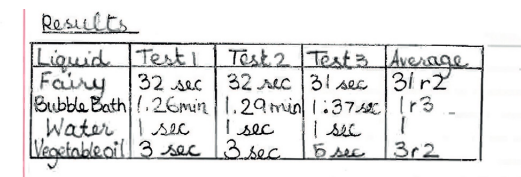 Results
Liquid Test 1 Test 2 Test 3 Average
Fairy 32 sec 32 sec 31 sec 31 r2
Bubble Bath 1.26min 1.29min 1:37sec 1r3
Water 1 sec 1 sec 1 sec 1
Vegetable oil 3 sec 3 sec 5 sec 3r2